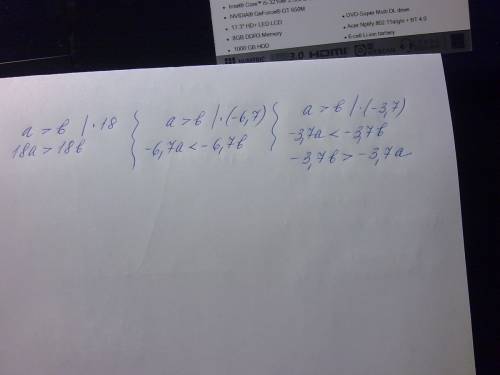 NVIDIA® GeForce® GT 650M
17.3" HD+ LED LCD
8GB DDR3 Memory
1000 GB HDD
DVD-Super Multi DL drive
Acer Nplify 802.11a/g/n + BT 4.0
6-cell Li-ion battery
HDMI
a > b | · 18
18a > 18b
a > b | · (-6,7)
-6,7a < -6,7b
a > b | · (-3,7)
-3,7a < -3,7b
-3,7b > -3,7a